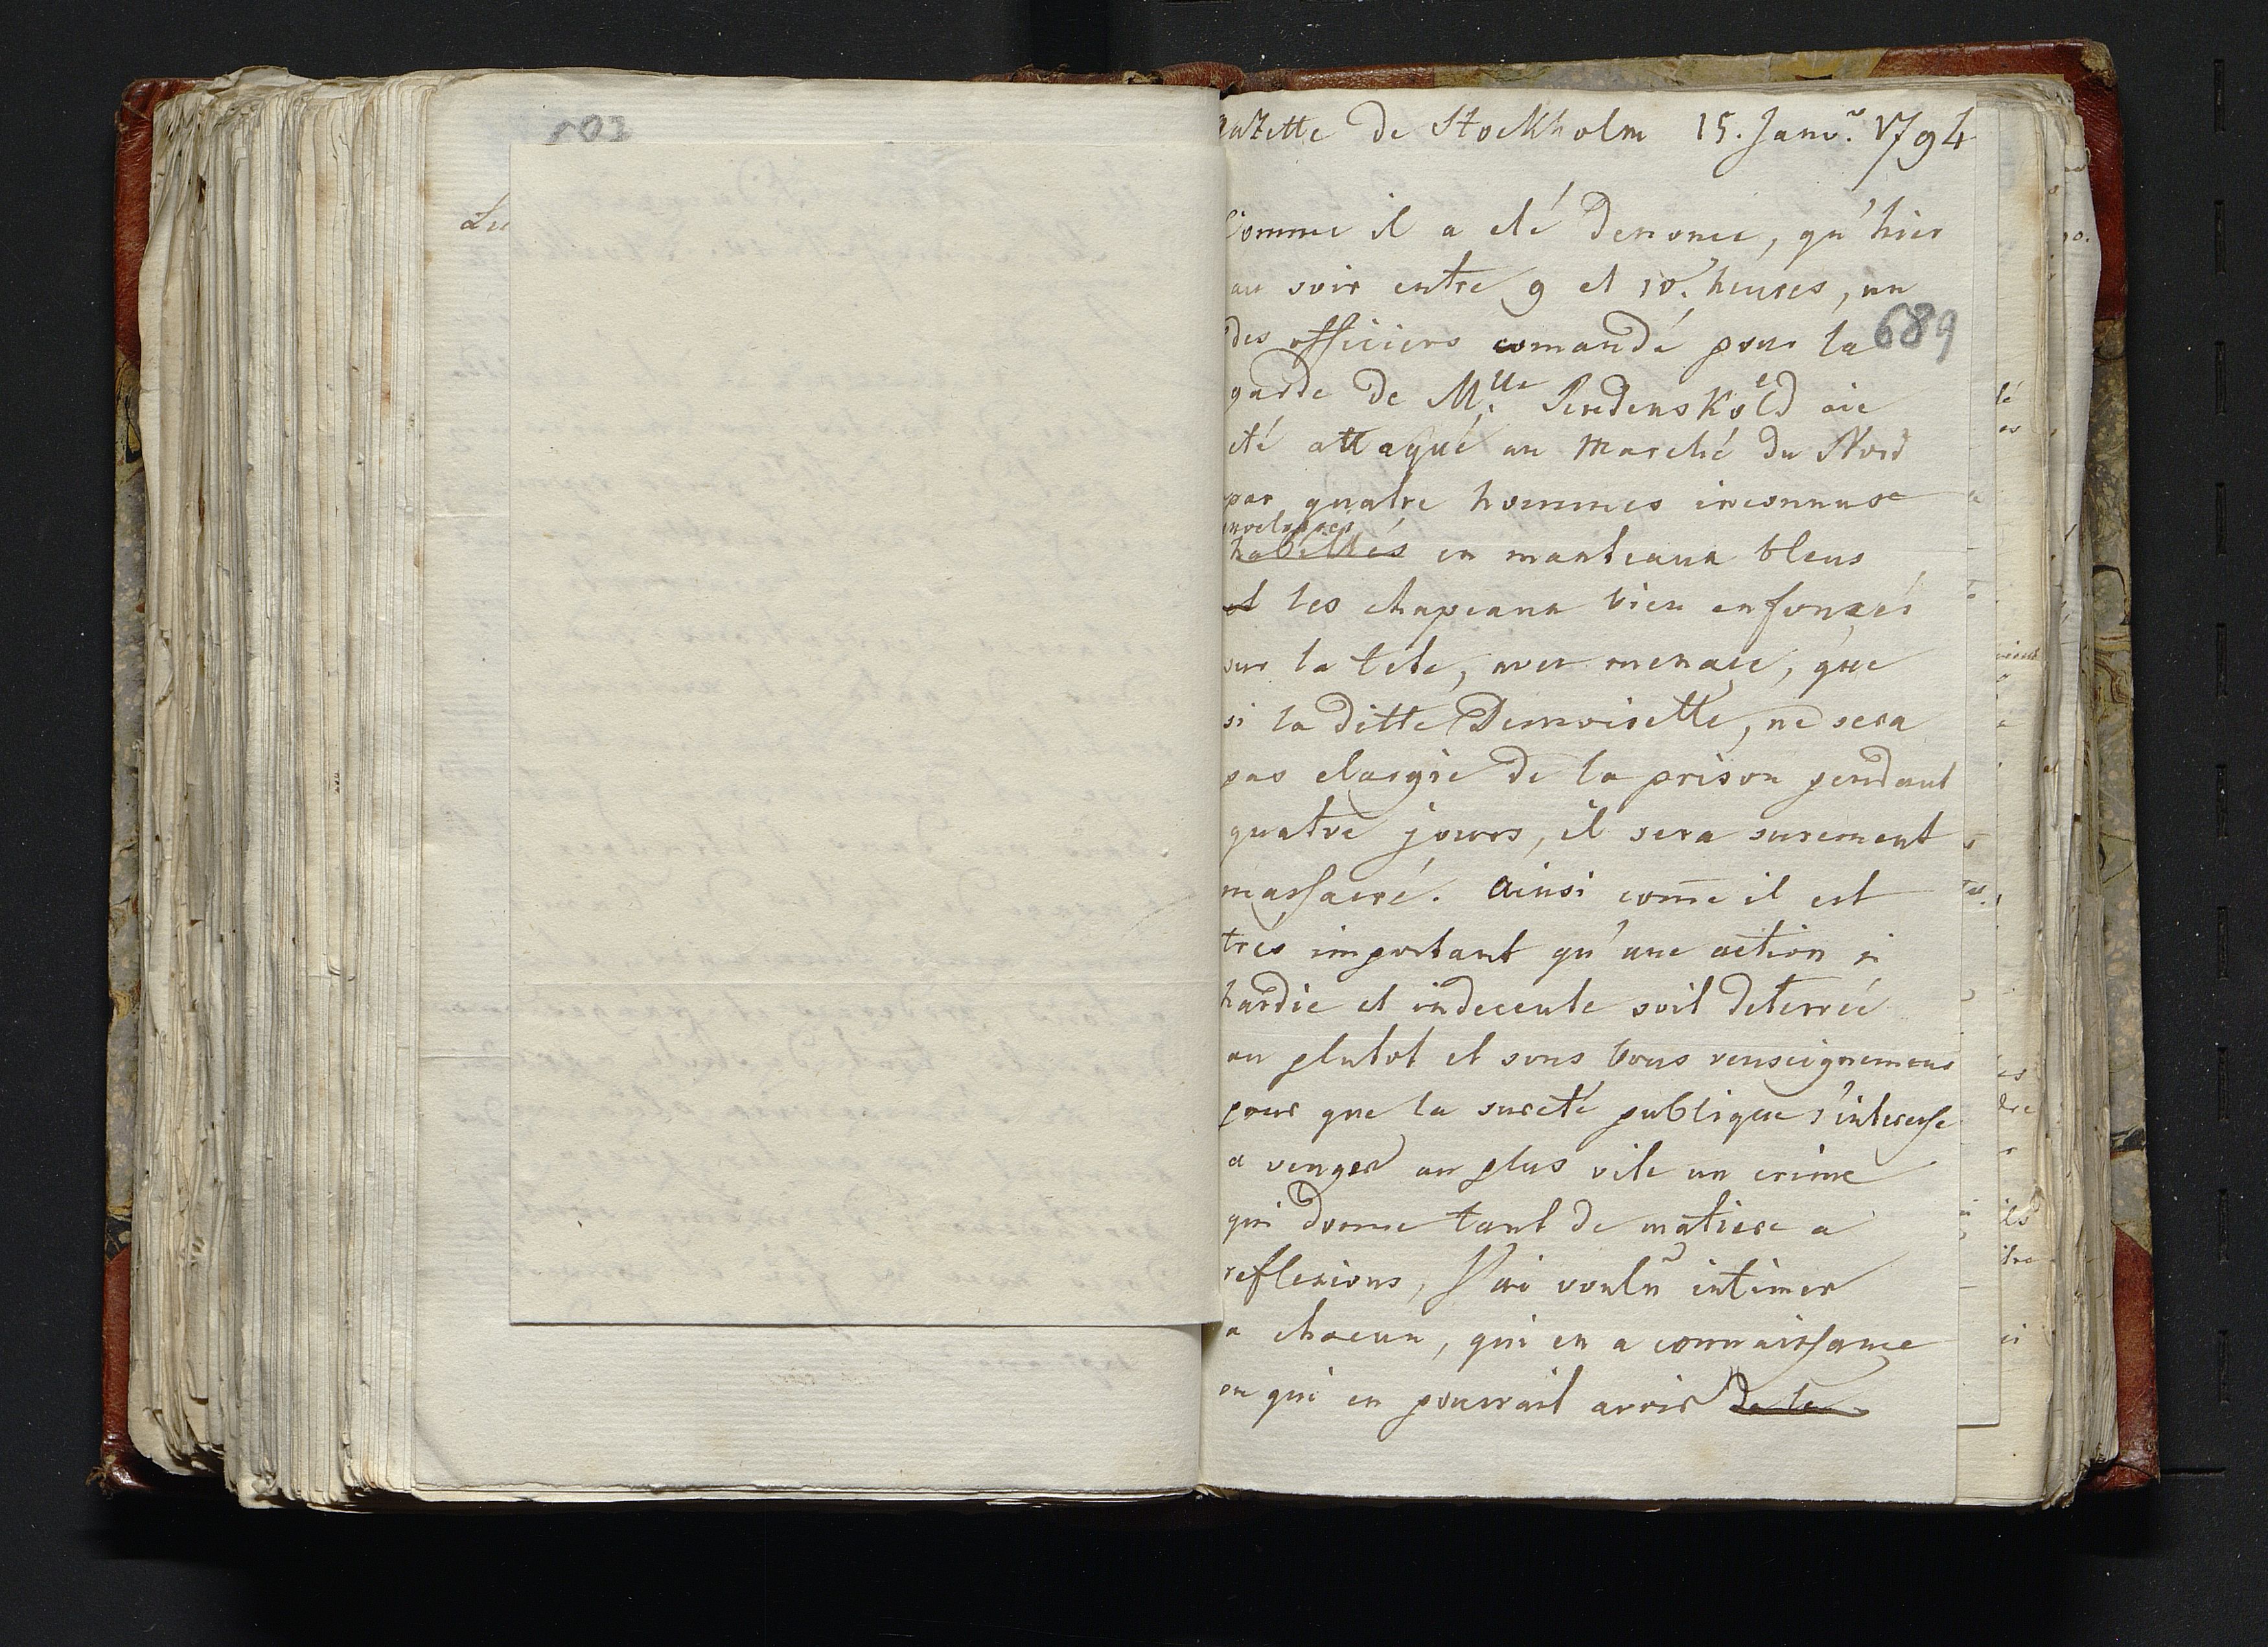 gazette de Stockholm 15. Janv.r 1794
Comme il a eté denoncé, qu'hier
au soir entre 9 et 10. heures, un
des officiers comandé pour la
689
garde de M.lle Rudenskoeld aie
eté attaqué au Marché du Nord
par quatre hommes inconnus
enveloppés
habillés en manteaux bleus
et les chapeaux bien enfonzés
sur la tete, avec menace, que
si la ditte Demoiselle, ne sera
pas elargie de la prison pendant
quatre jours, il sera surement
massacré. Ainsi come il est
tres important qu'une action si
hardie et indecente soit deterrée
au plutot et sous tous renseignemens
pour que la sureté publique s'interesse
a venger au plus vite un crime
qui donne tant de matiere a
reflexions, J'ai voulu intimer
a chacun, qui en a connaissance
ou qui en pourrait avoir de la